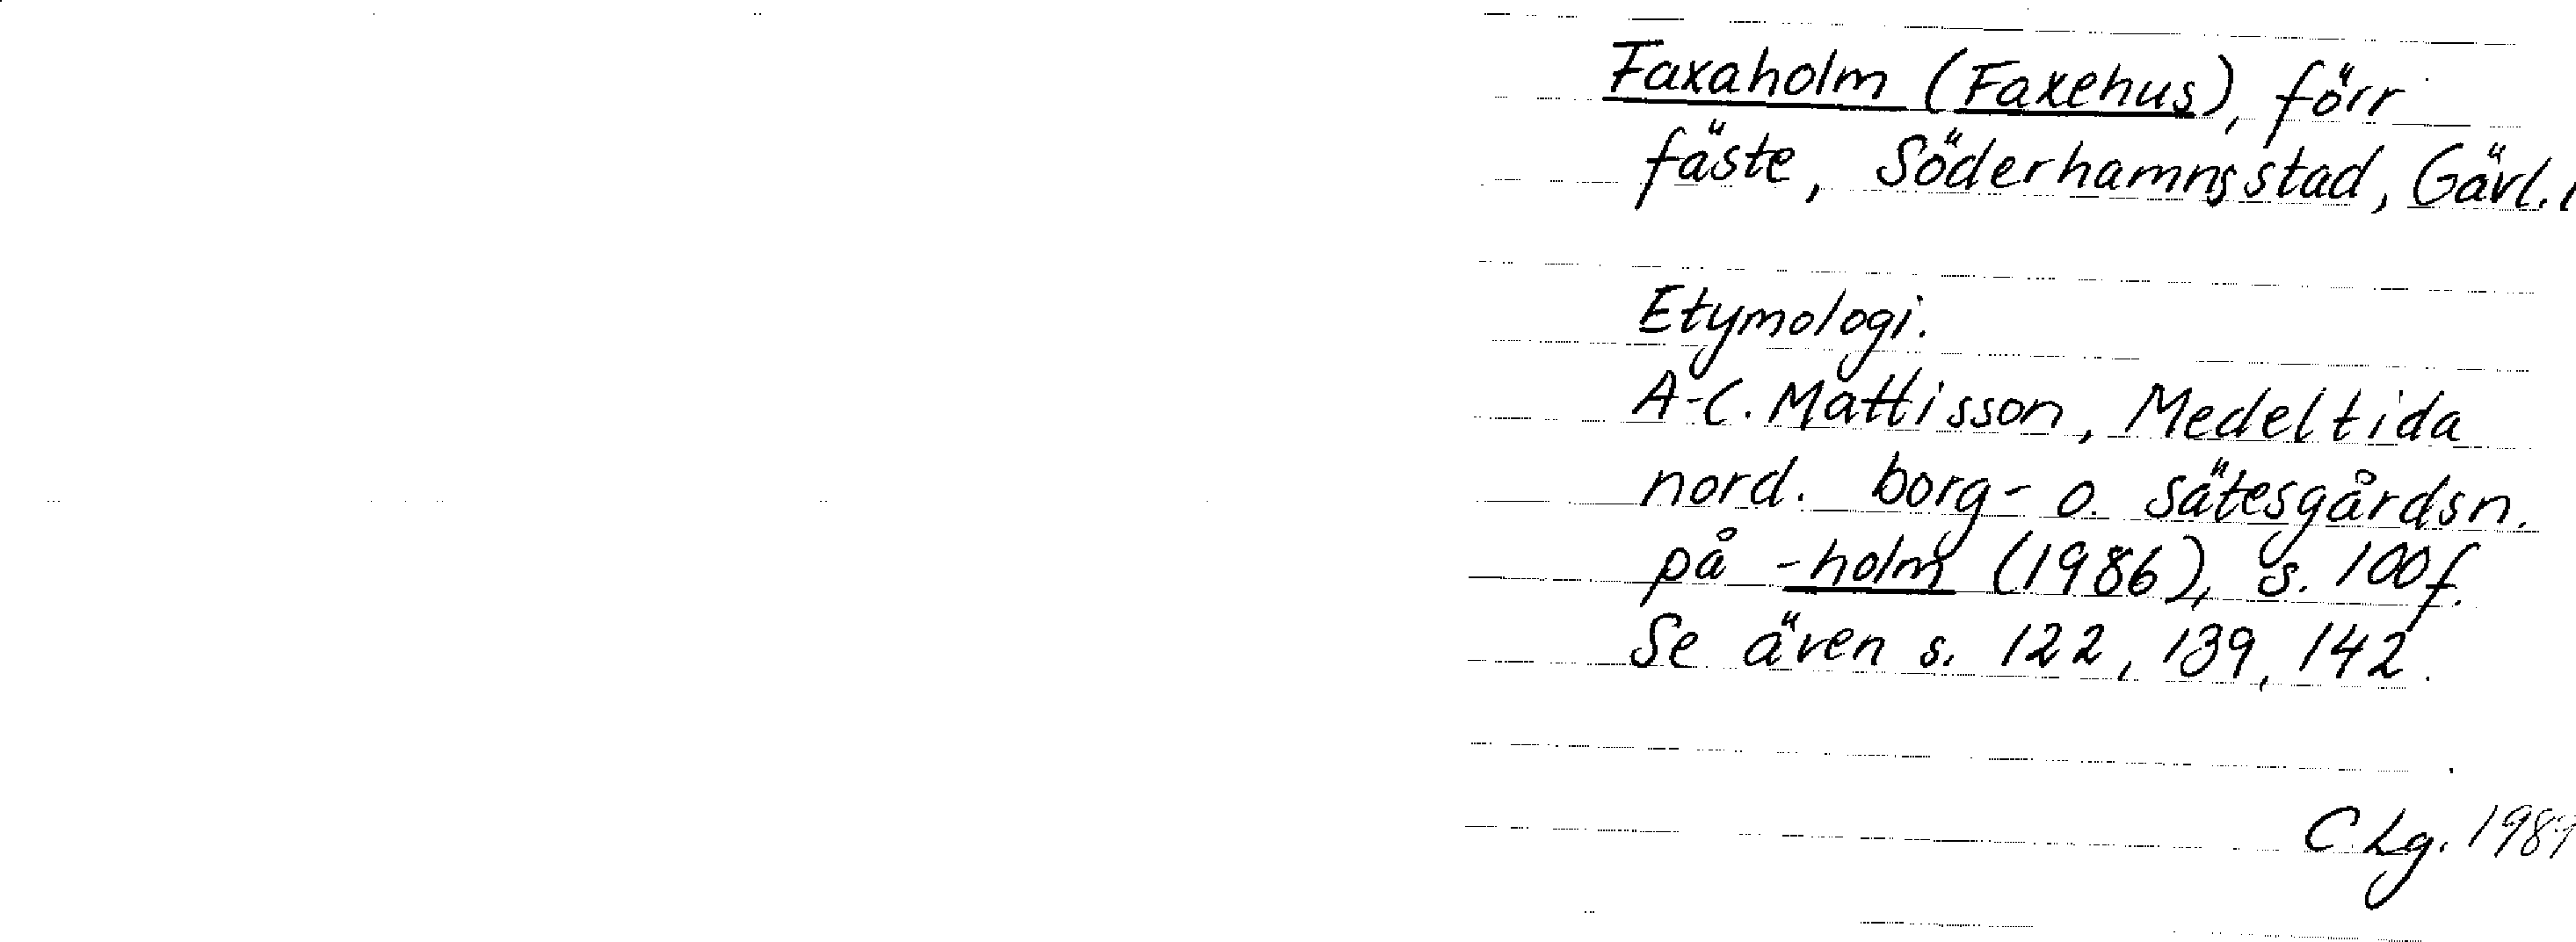 Faxaholm (Faxehus), förr
fäste, Söderhamns stad, Gävl. l
Etymologi.
A-C. Mattisson, Medeltida
nord. borg- o. sätesgårdsn.
på -holm (1986), s. 100f.
Se även s. 122, 139, 142.
C Lg. 1989